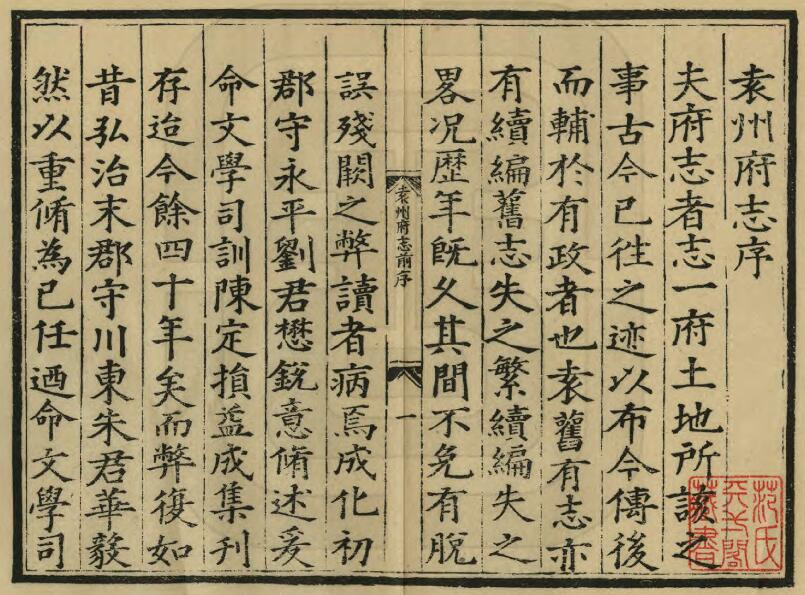 袁州府志序
夫府志者志一府土地所該之
事古今已徃之迹以布今傳後
而輔於有政者也袁舊有志亦
有續編舊志失之繁續編失之
畧况歷年旣久其間不免有脫
袁州府志前序
一
誤殘闕之弊讀者病焉成化初
郡守永平劉君懋銳意脩述爰
命文學司訓陳定損益成集刊
存迨今餘四十年矣而弊復如
昔弘治末郡守川東朱君華毅
然以重脩為己任廼命文學司
范氏
天一閣
藏書